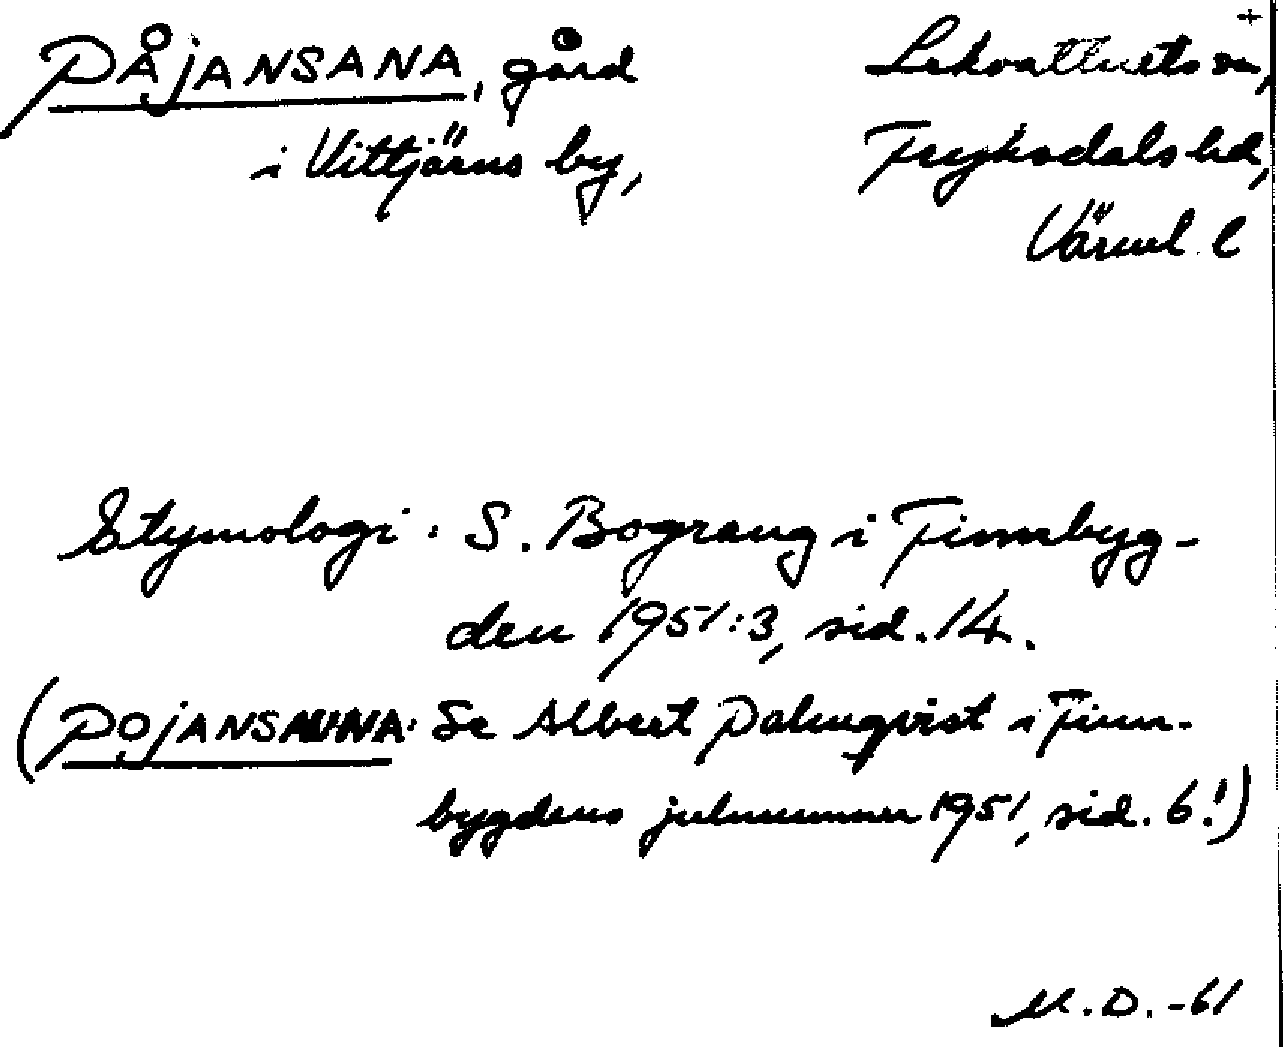 +
PÅJANSANA, gård Lekvattnets sn,
i Vittjärns by, Fryksdals hd,
Värml. l
Etymologi: S. Bograng i Finnbyg-
den 1951:3, sid. 14.
(POJANSAUNA: Se Albert Palmqvist i Finn-
bygdens julnummer 1951, sid. 6!)
M.D. -61